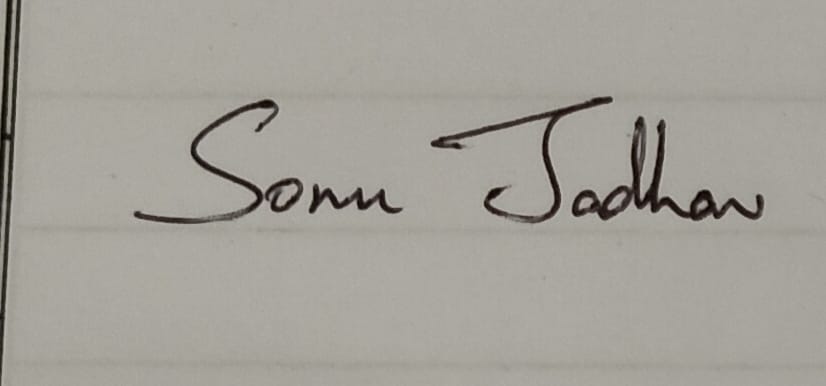 Sonu Jadhav